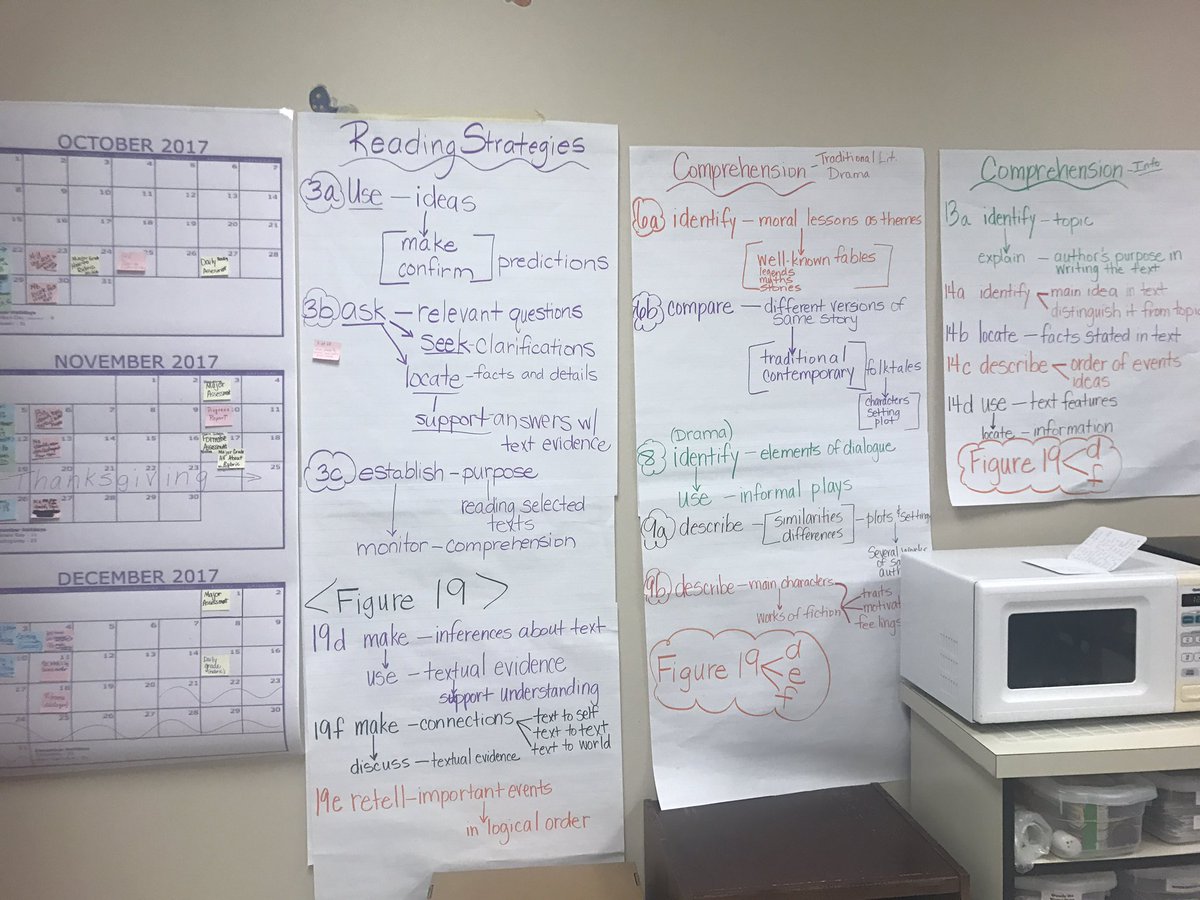 OCTOBER 2017
1 2 3 4 5 6 7
8 9 10 11 12 13 14
15 16 17 18 19 20 21
22 23 24 25 26 27 28
29 30 31
Daily
Assessment
NOVEMBER 2017
1 2 3 4
5 6 7 8 9 10 11
12 13 14 15 16 17 18
Major
Assessment
Progress
Report
Formative
Assessment
Major Grade
Thanksgiving
26 27 28 29 30
DECEMBER 2017
1 2
3 4 5 6 7 8 9
10 11 12 13 14 15 16
17 18 19 20 21 22 23
24 25 26 27 28 29 30
Major
Assessment
Daily
grade
Reading Strategies
3a Use – ideas
make
confirm
predictions
3b ask – relevant questions
seek – clarifications
locate – facts and details
support answers w/
text evidence
3c establish – purpose
reading selected
texts
monitor – comprehension
<Figure 19>
19d make – inferences about text
use – textual evidence
support understanding
19f make – connections
text to self
text to text
text to world
discuss – textual evidence
19e retell – important events
in logical order
Comprehension – Traditional Lit.
Drama
6a identify – moral lessons as themes
well-known fables
legends
myths
stories
6b compare – different versions of
same story
traditional
contemporary
folktales
characters
setting
plot
(Drama)
8 identify – elements of dialogue
use – informal plays
9a describe – similarities
differences
– plots & setting
Several works
of
9b describe – main characters
works of fiction
traits
motivat
feelings
Figure 19 < d
e
f
Comprehension – Info
13a identify – topic
explain – author's purpose in
writing the text
14a identify < main idea in text
distinguish it from topic
14b locate – facts stated in text
14c describe < order of events
ideas
14d use – text features
locate – information
Figure 19 < d
f